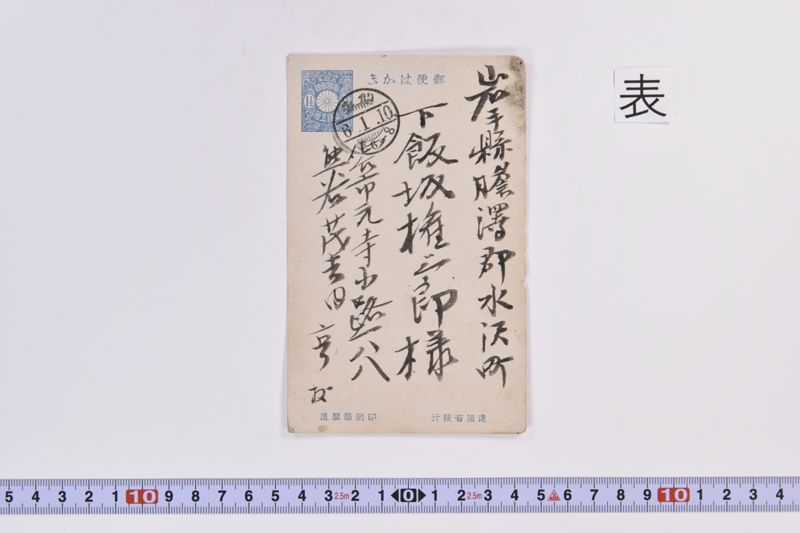 表
郵便はかき
岩手縣膽澤郡水沢町
下飯坂権三郎様
仙台市元寺小路一八
熊谷茂吉田
6.1.10
遞信省發行
印刷局製造
5 4 3 2 1 10 9 8 7 6 5 4 3 2.5m 2 1 0 1 2 2.5m 3 4 5 6 7 8 9 10 1 2 3 4